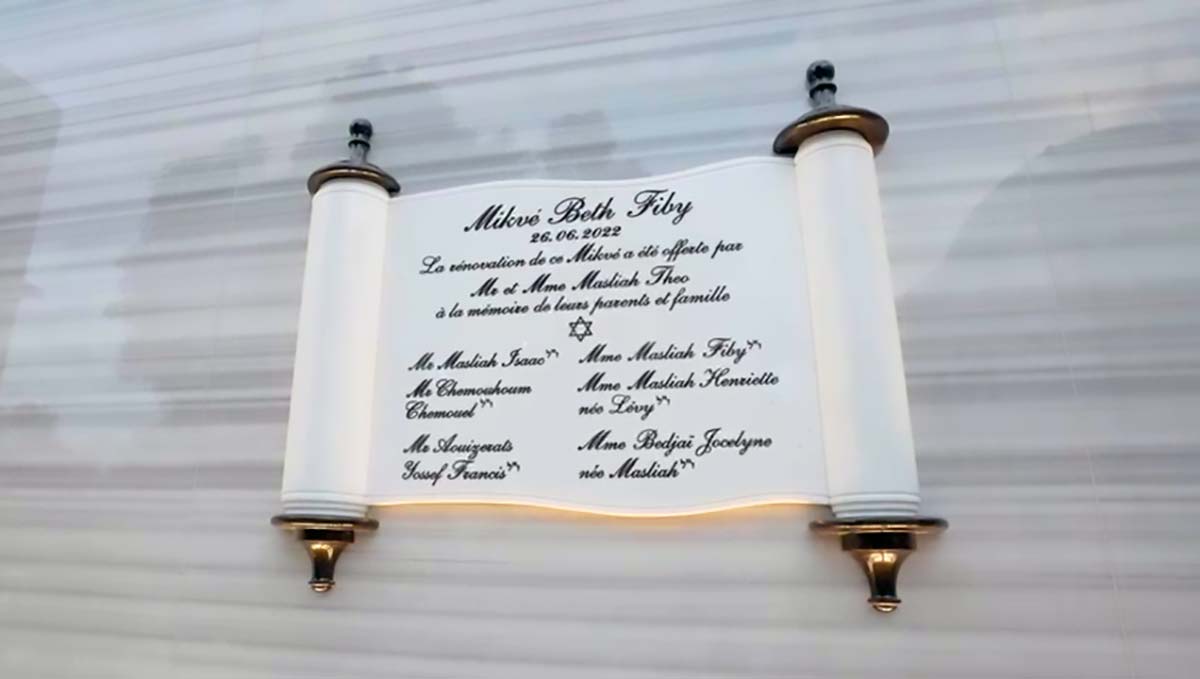 Mikvé Beth Fiby
26.06.2022
La rénovation de ce Mikvé a été offerte par
Mr et Mme Masliah Theo
à la mémoire de leurs parents et famille
Mr Masliah Isaac ז״ל
Mr Chemouhoum
Chemouel ז״ל
Mr Aouizerats
Yossef Francis ז״ל
Mme Masliah Fiby ז״ל
Mme Masliah Henriette
née Lévy ז״ל
Mme Bedjaï Jocelyne
née Masliah ז״ל